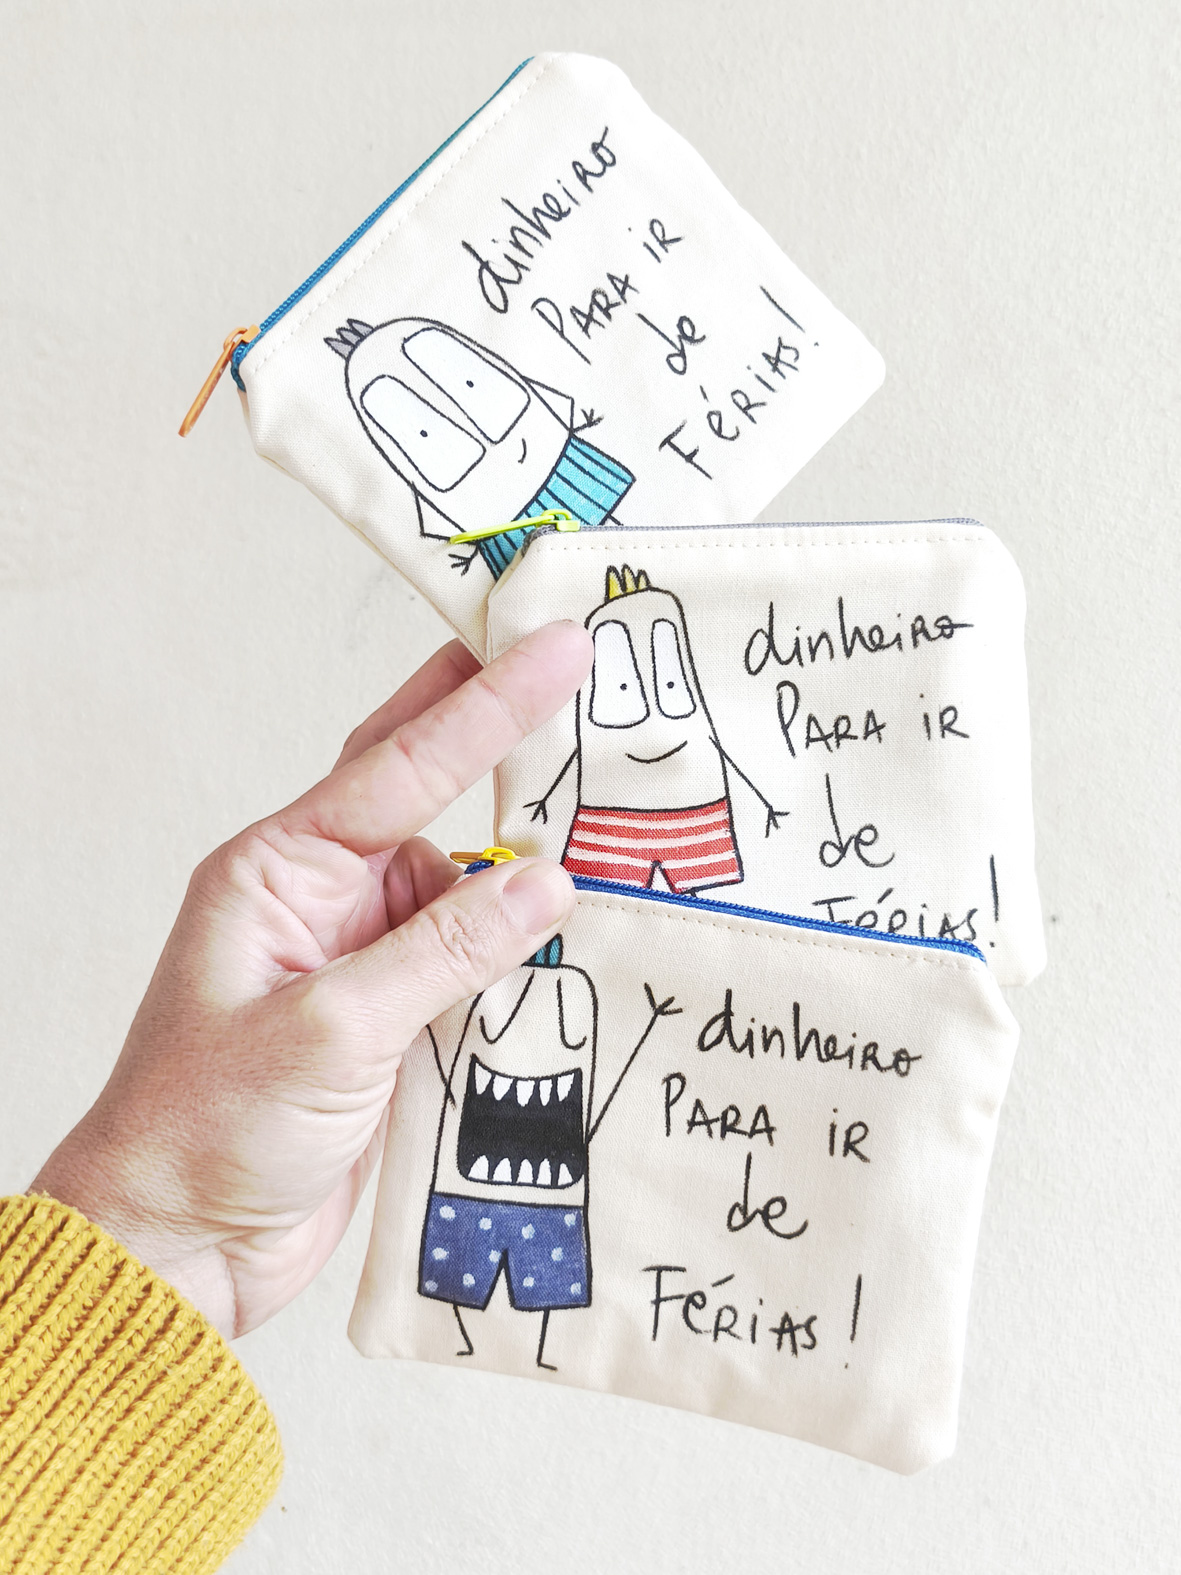 dinheiro
PARA iR
de
FéRiAS!
dinheiro
PARA iR
de
FéRiAS!
dinheiro
PARA iR
de
FéRiAS!